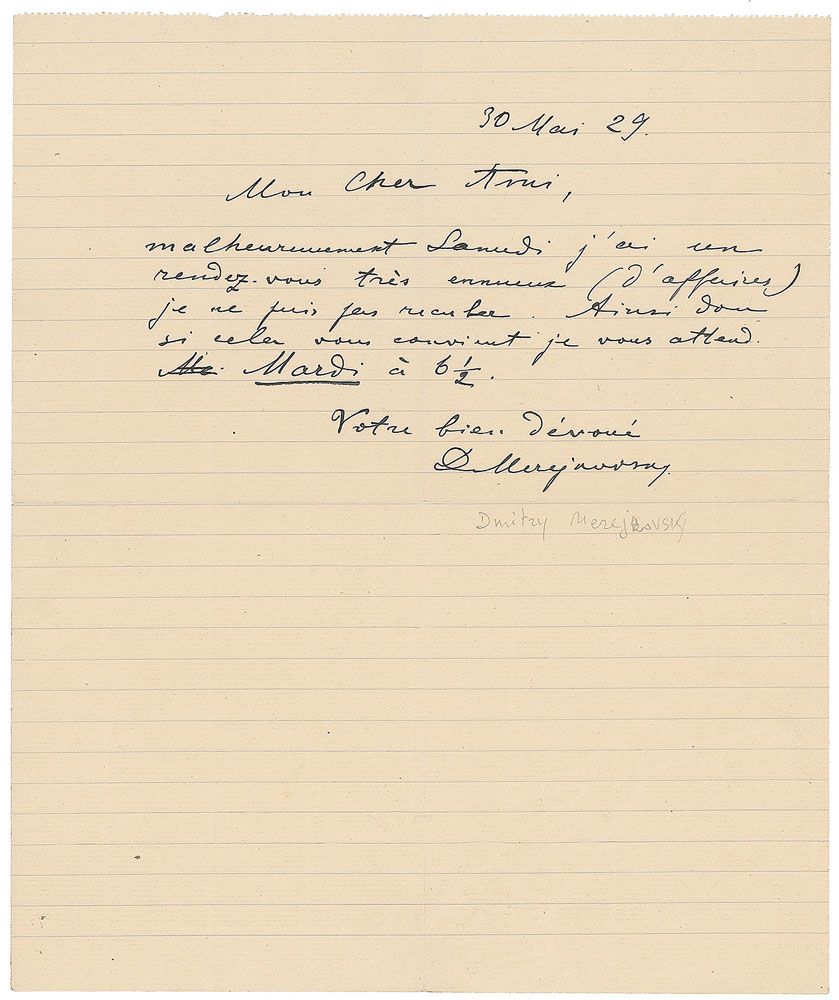 30 Mai 29.
Mon Cher Ami,
malheureusement Samedi j'ai un
rendez-vous très ennueux (d'affaires)
je ne puis pas reculer. Ainsi don
si cela vous convient je vous attend.
Mardi à 6 1/2.
Votre bien dévoué
D Merejkovsky
Dmitry Merejkovsky